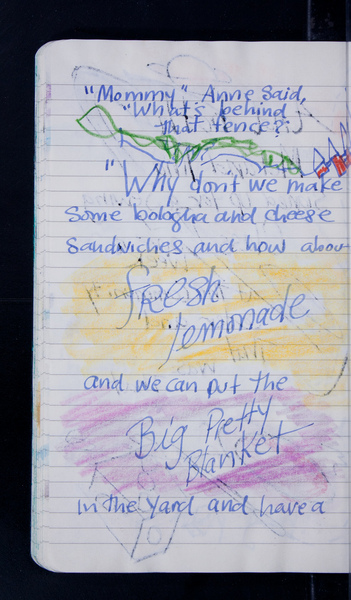 "Mommy" Anne said,
"What's behind
that fence?"
"Why don't we make
Some bologna and cheese
Sandwiches and how about
fresh
lemonade
and we can put the
Big Pretty
Blanket
in the yard and have a